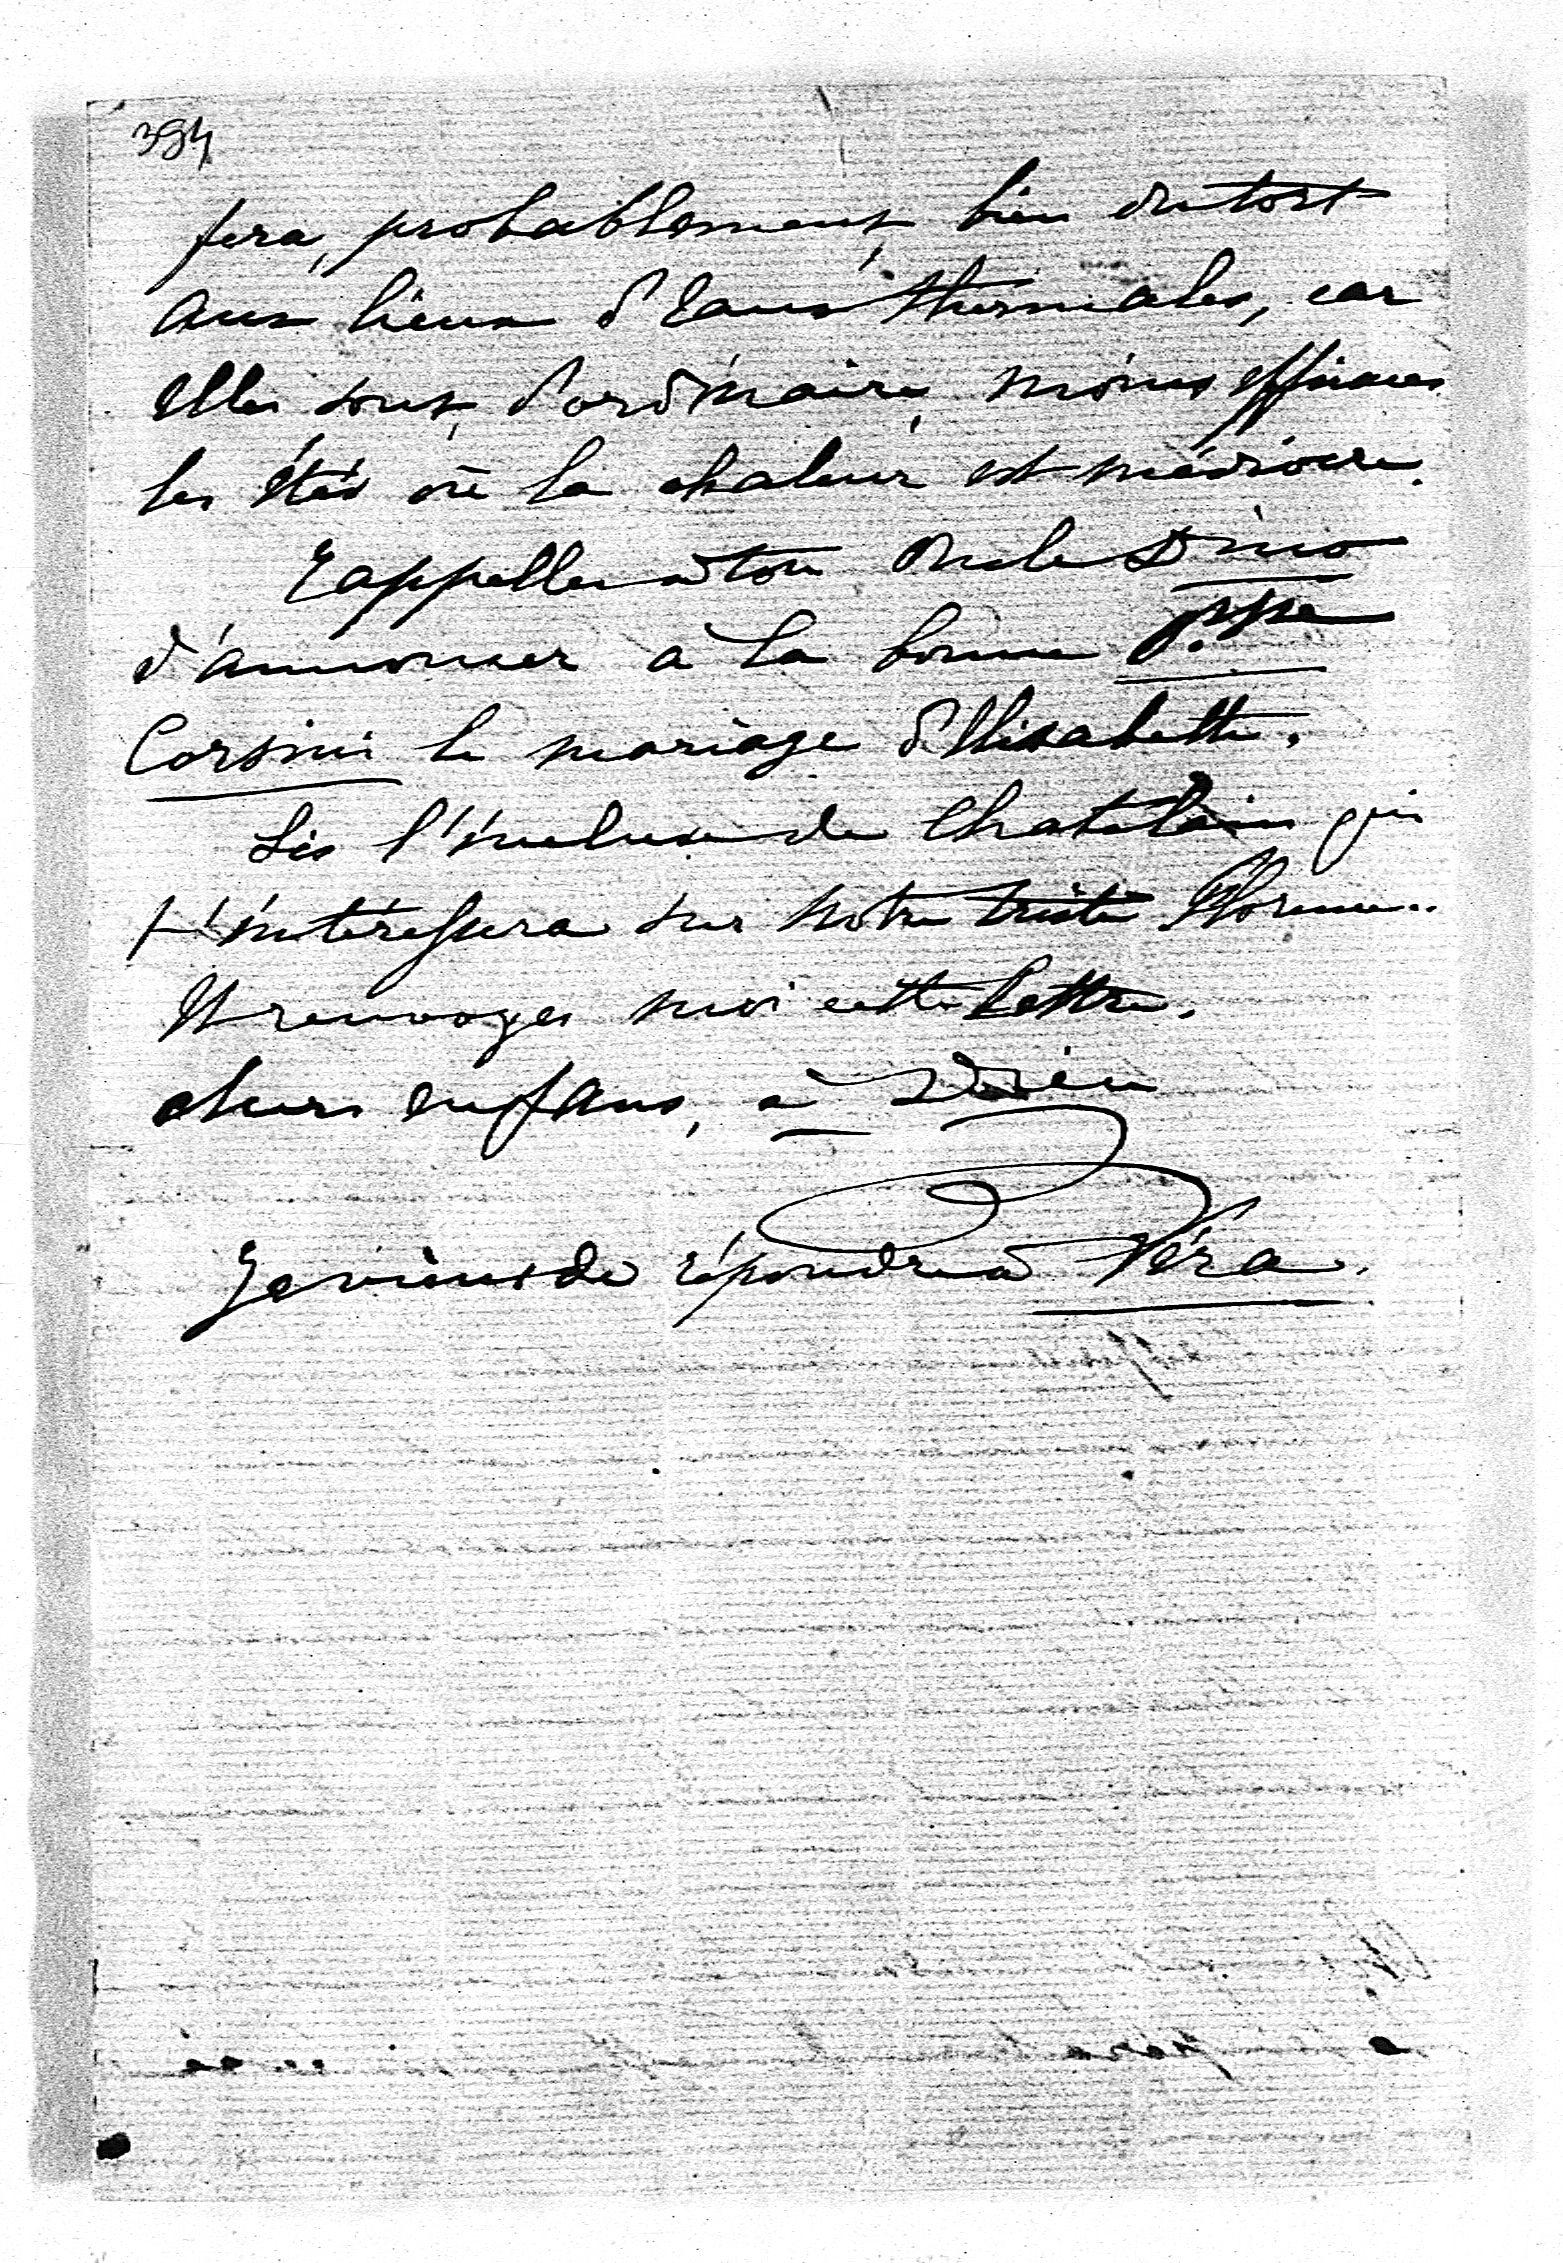 394
fera probablement bien du tort
aux lieux d'Eaux thermales, car
Elles sont d'ordinaire moins efficaces
les étés où la chaleur est médiocre.
Rappelles à ton Oncle Dino
d'annoncer à la bonne P.sse
Corsini le mariage d'Elisabette.
Lis l'incluse de Chatelain qui
t'intéressera sur notre triste Florence
Et renvoyes moi cette Lettre.
chers enfans, à Dieu
Je viens de répondre à Véra.